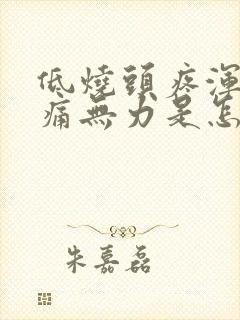 低燒頭疼渾
痛無力是怎
朱嘉磊